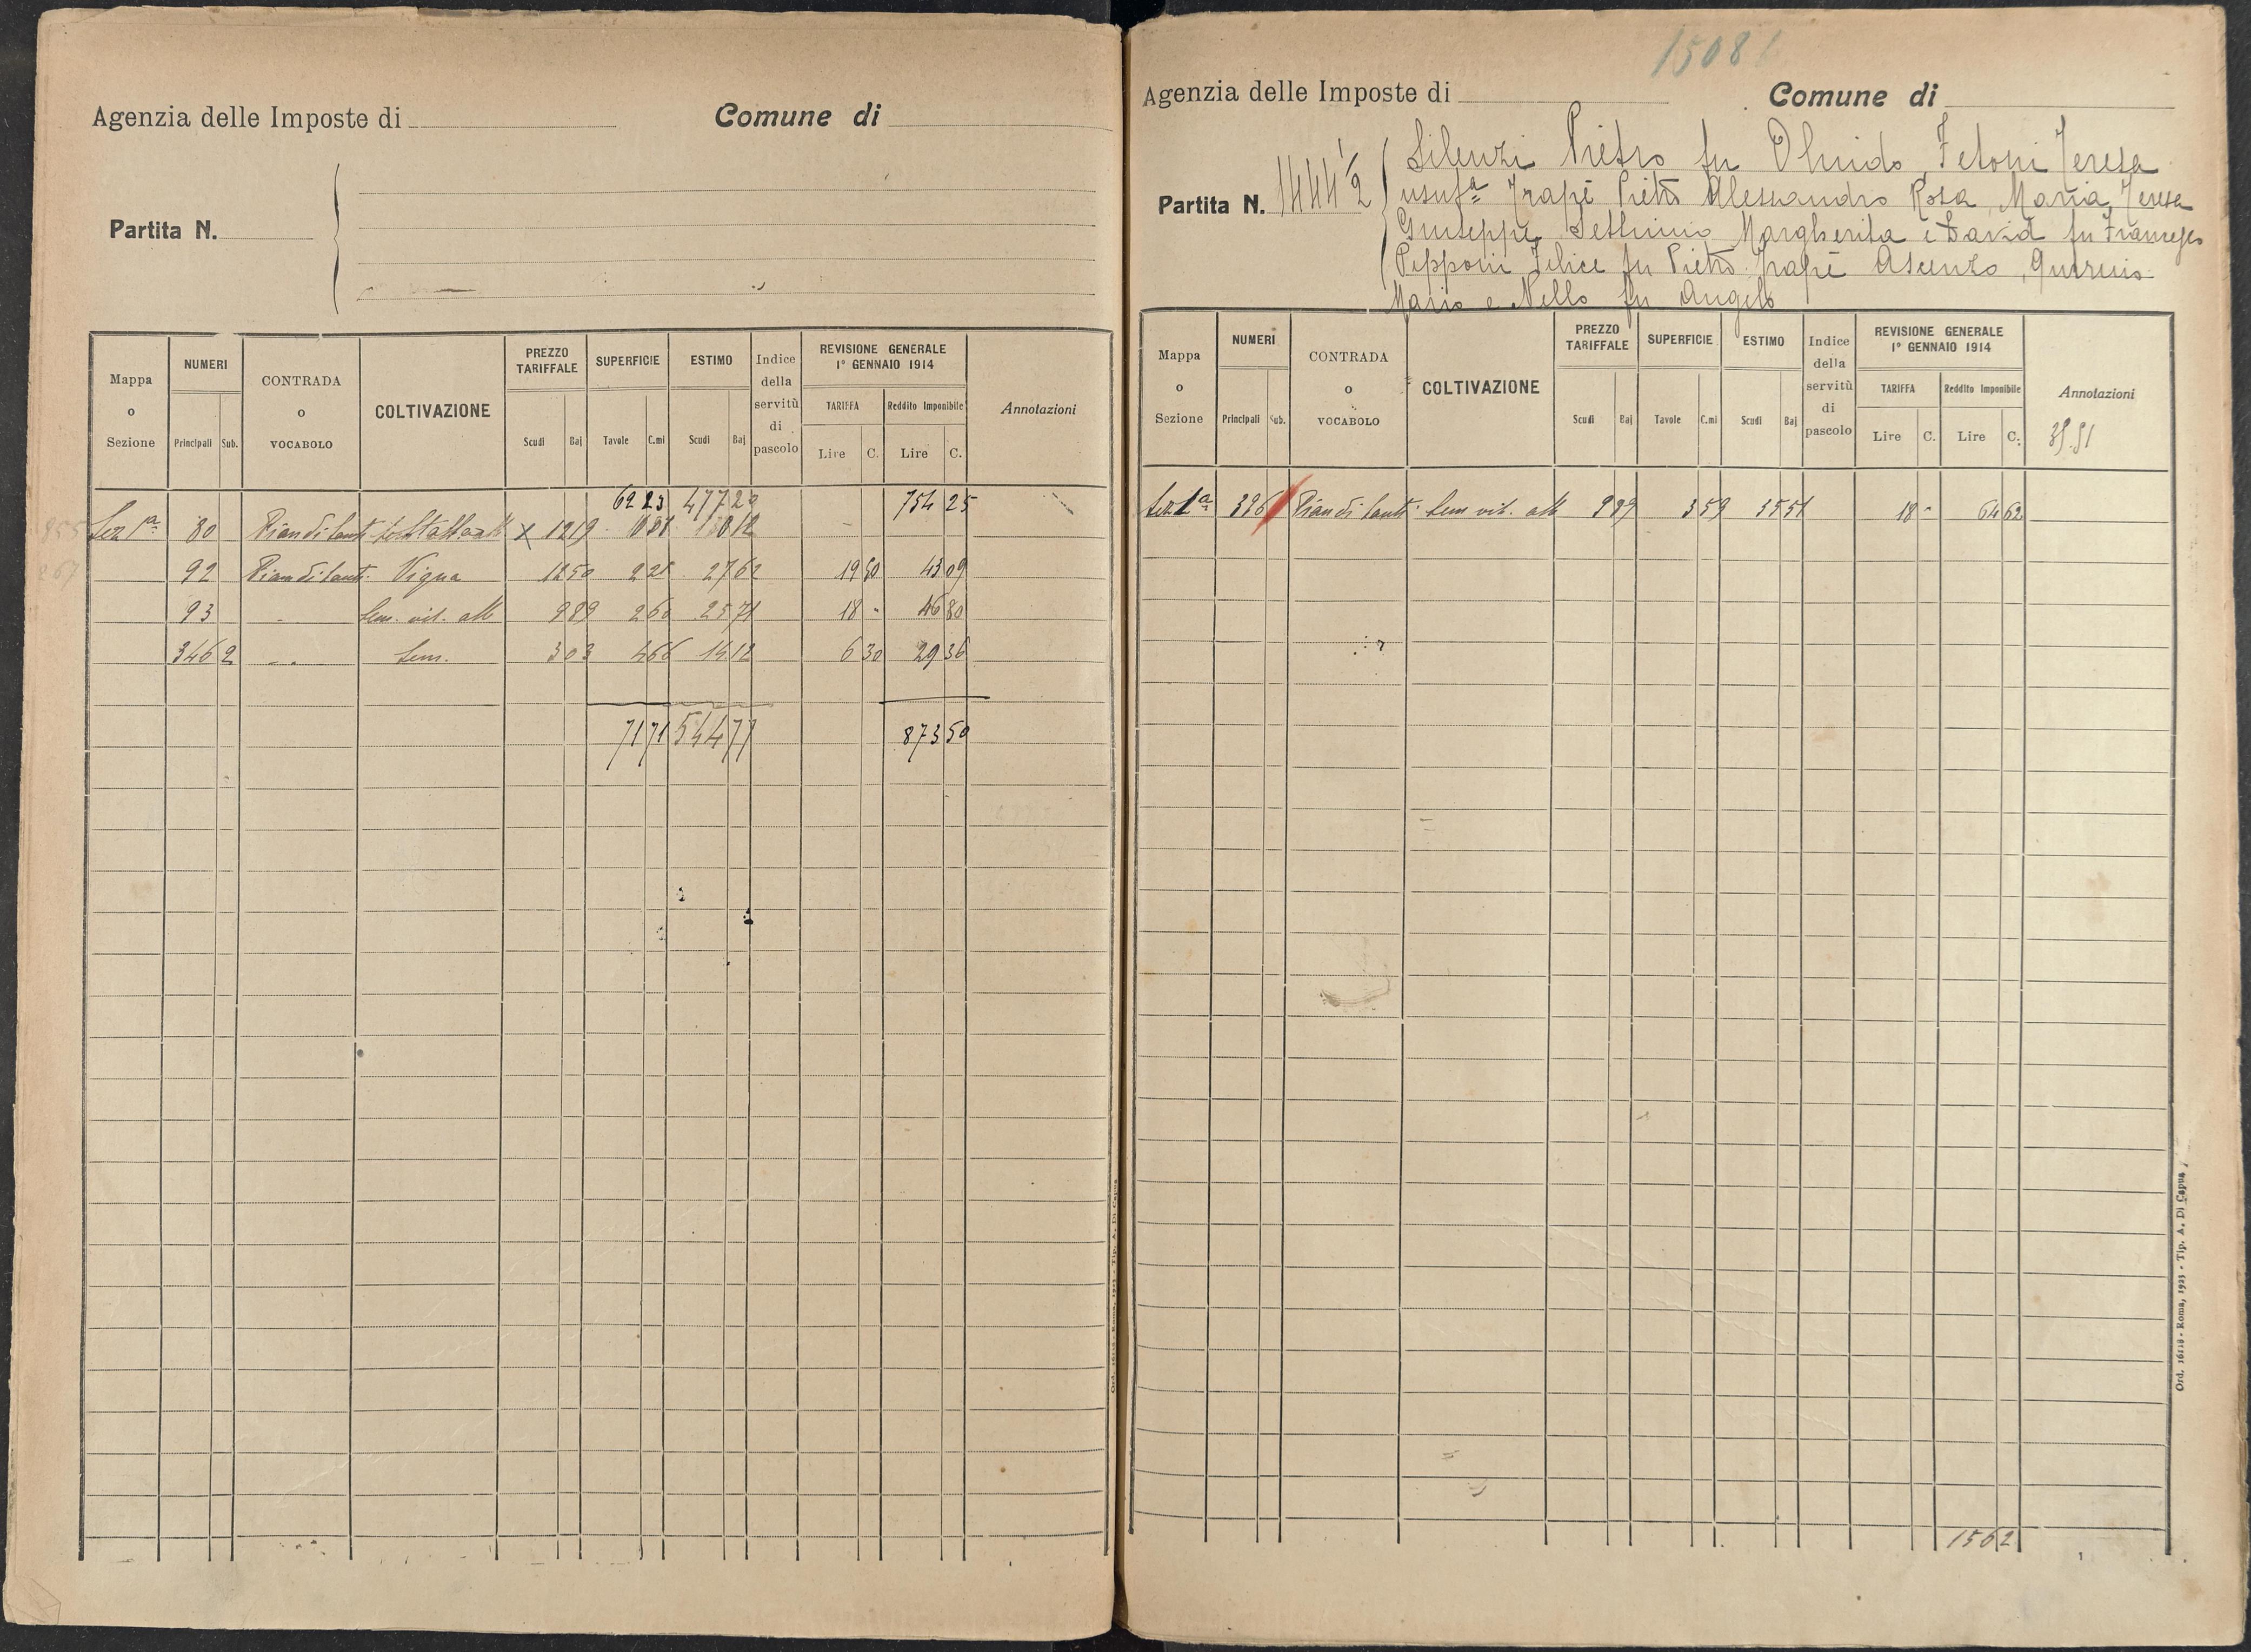 Agenzia delle Imposte di
Comune di
Partita N.
Mappa o Sezione
NUMERI
Principali
Sub.
CONTRADA o VOCABOLO
COLTIVAZIONE
PREZZO TARIFFALE
Scudi
Baj
SUPERFICIE
Tavole
C.mi
ESTIMO
Scudi
Baj
Indice della servitù di pascolo
REVISIONE GENERALE
1° GENNAIO 1914
TARIFFA
Lire
C.
Reddito Imponibile
Lire
C.
Annotazioni
62 23 477 20 754 25
Sez 1ª 80 Piandisanti x 12 19
92 Piandisanti Vigna 12 50 2 21 27 62 19 50 43 09
93 Sem. vit. alb 9 89 2 60 25 71 18 - 46 80
346 2 Sem. 3 03 4 66 14 12 6 30 29 36
71 71 544 77 873 50
Ord. 16118 - Roma, 1923 - Tip. A. Di Capua
1508
Agenzia delle Imposte di
Comune di
Partita N. 1444 1/2
Silenzi Pietro fu Teresa
usufª Trapè Pietro Alessandro Rosa, Maria, Teresa
Giuseppe Settimio Margherita e David fu Francesco
Pepponi Felice fu Pietro. Trapè Ascenzo, Quirino
Mario e Nello fu Angelo
Mappa o Sezione
NUMERI
Principali
Sub.
CONTRADA o VOCABOLO
COLTIVAZIONE
PREZZO TARIFFALE
Scudi
Baj
SUPERFICIE
Tavole
C.mi
ESTIMO
Scudi
Baj
Indice della servitù di pascolo
REVISIONE GENERALE
1° GENNAIO 1914
TARIFFA
Lire
C.
Reddito Imponibile
Lire
C.
Annotazioni
Sez 1ª 396 Piandisanti Sem vit. alb 9 89 3 59 35 51 18 - 64 62
1562
Ord. 16118 - Roma, 1923 - Tip. A. Di Capua